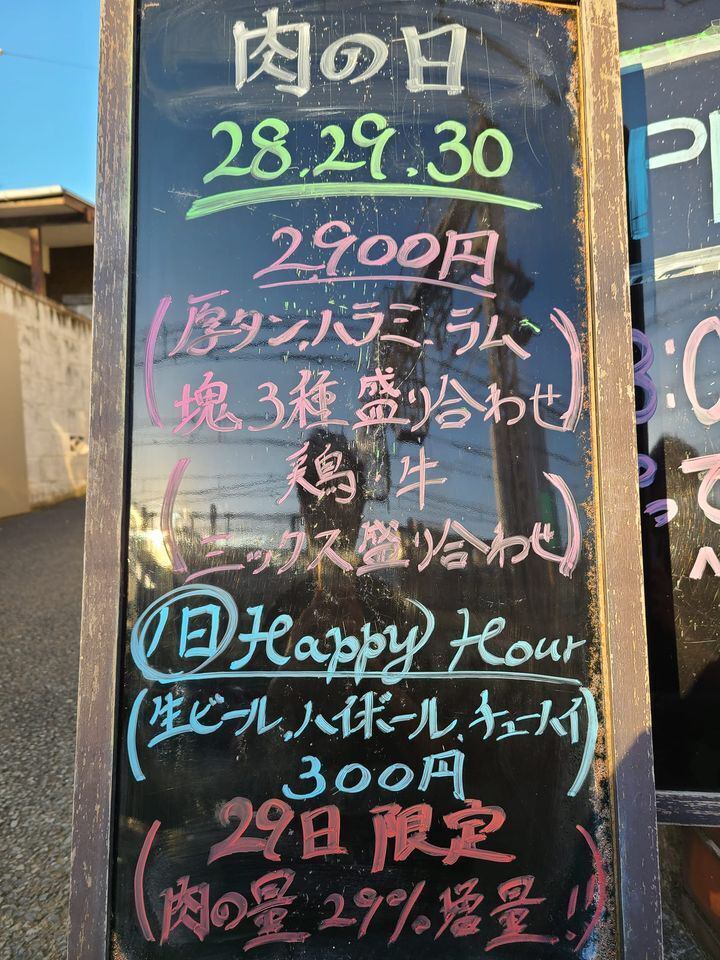 肉の日
28.29.30
2,900円
(厚タン.ハラミ.ラム
塊3種盛り合わせ)
(鶏.牛
ミックス盛り合わせ)
1日Happy Hour
(生ビール.ハイボール.チューハイ)
300円
29日限定
(肉の量29%増量!!)